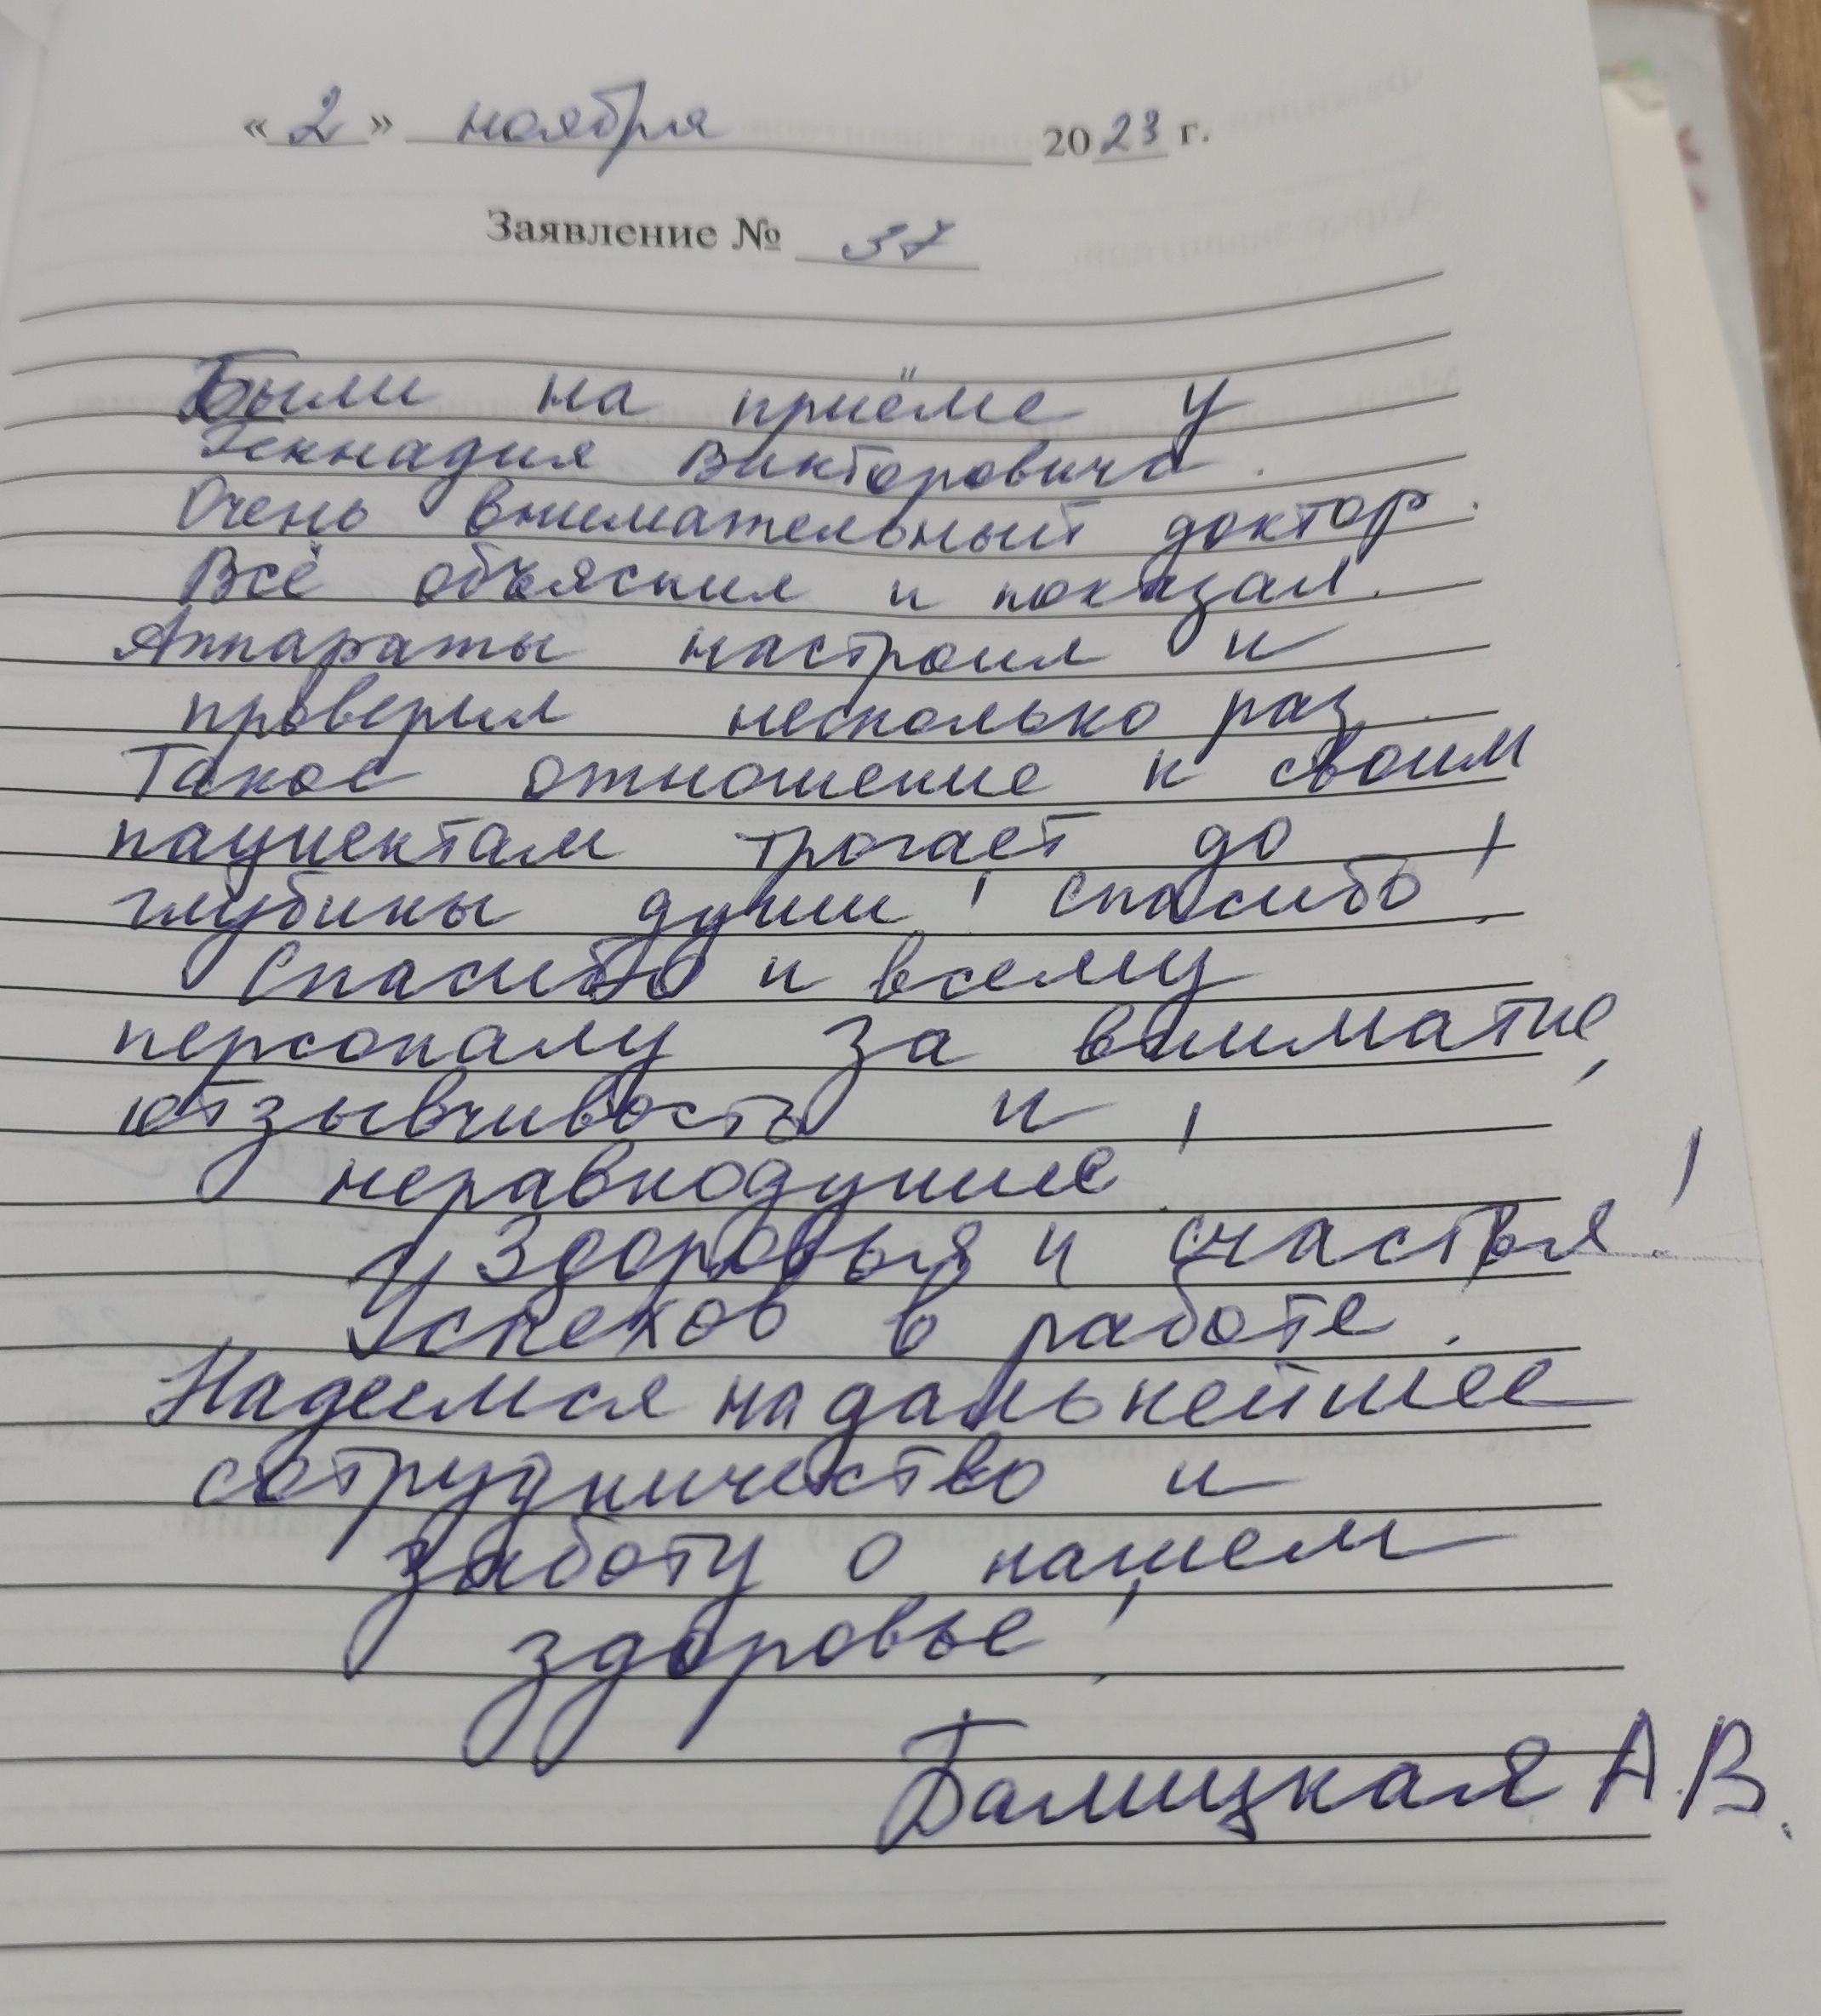 «2» ноября 2023 г.
Заявление № 37
Были на приёме у
Геннадия Викторовича.
Очень внимательный доктор.
Всё объяснил и показал.
Аппараты настроил и
проверил несколько раз.
Такое отношение к своим
пациентам трогает до
глубины души! Спасибо!
Спасибо и всему
персоналу за внимание,
отзывчивость и
неравнодушие!
Здоровья и счастья!
Успехов в работе.
Надеемся на дальнейшее
сотрудничество и
заботу о нашем
здоровье!
Балицкая А.В.